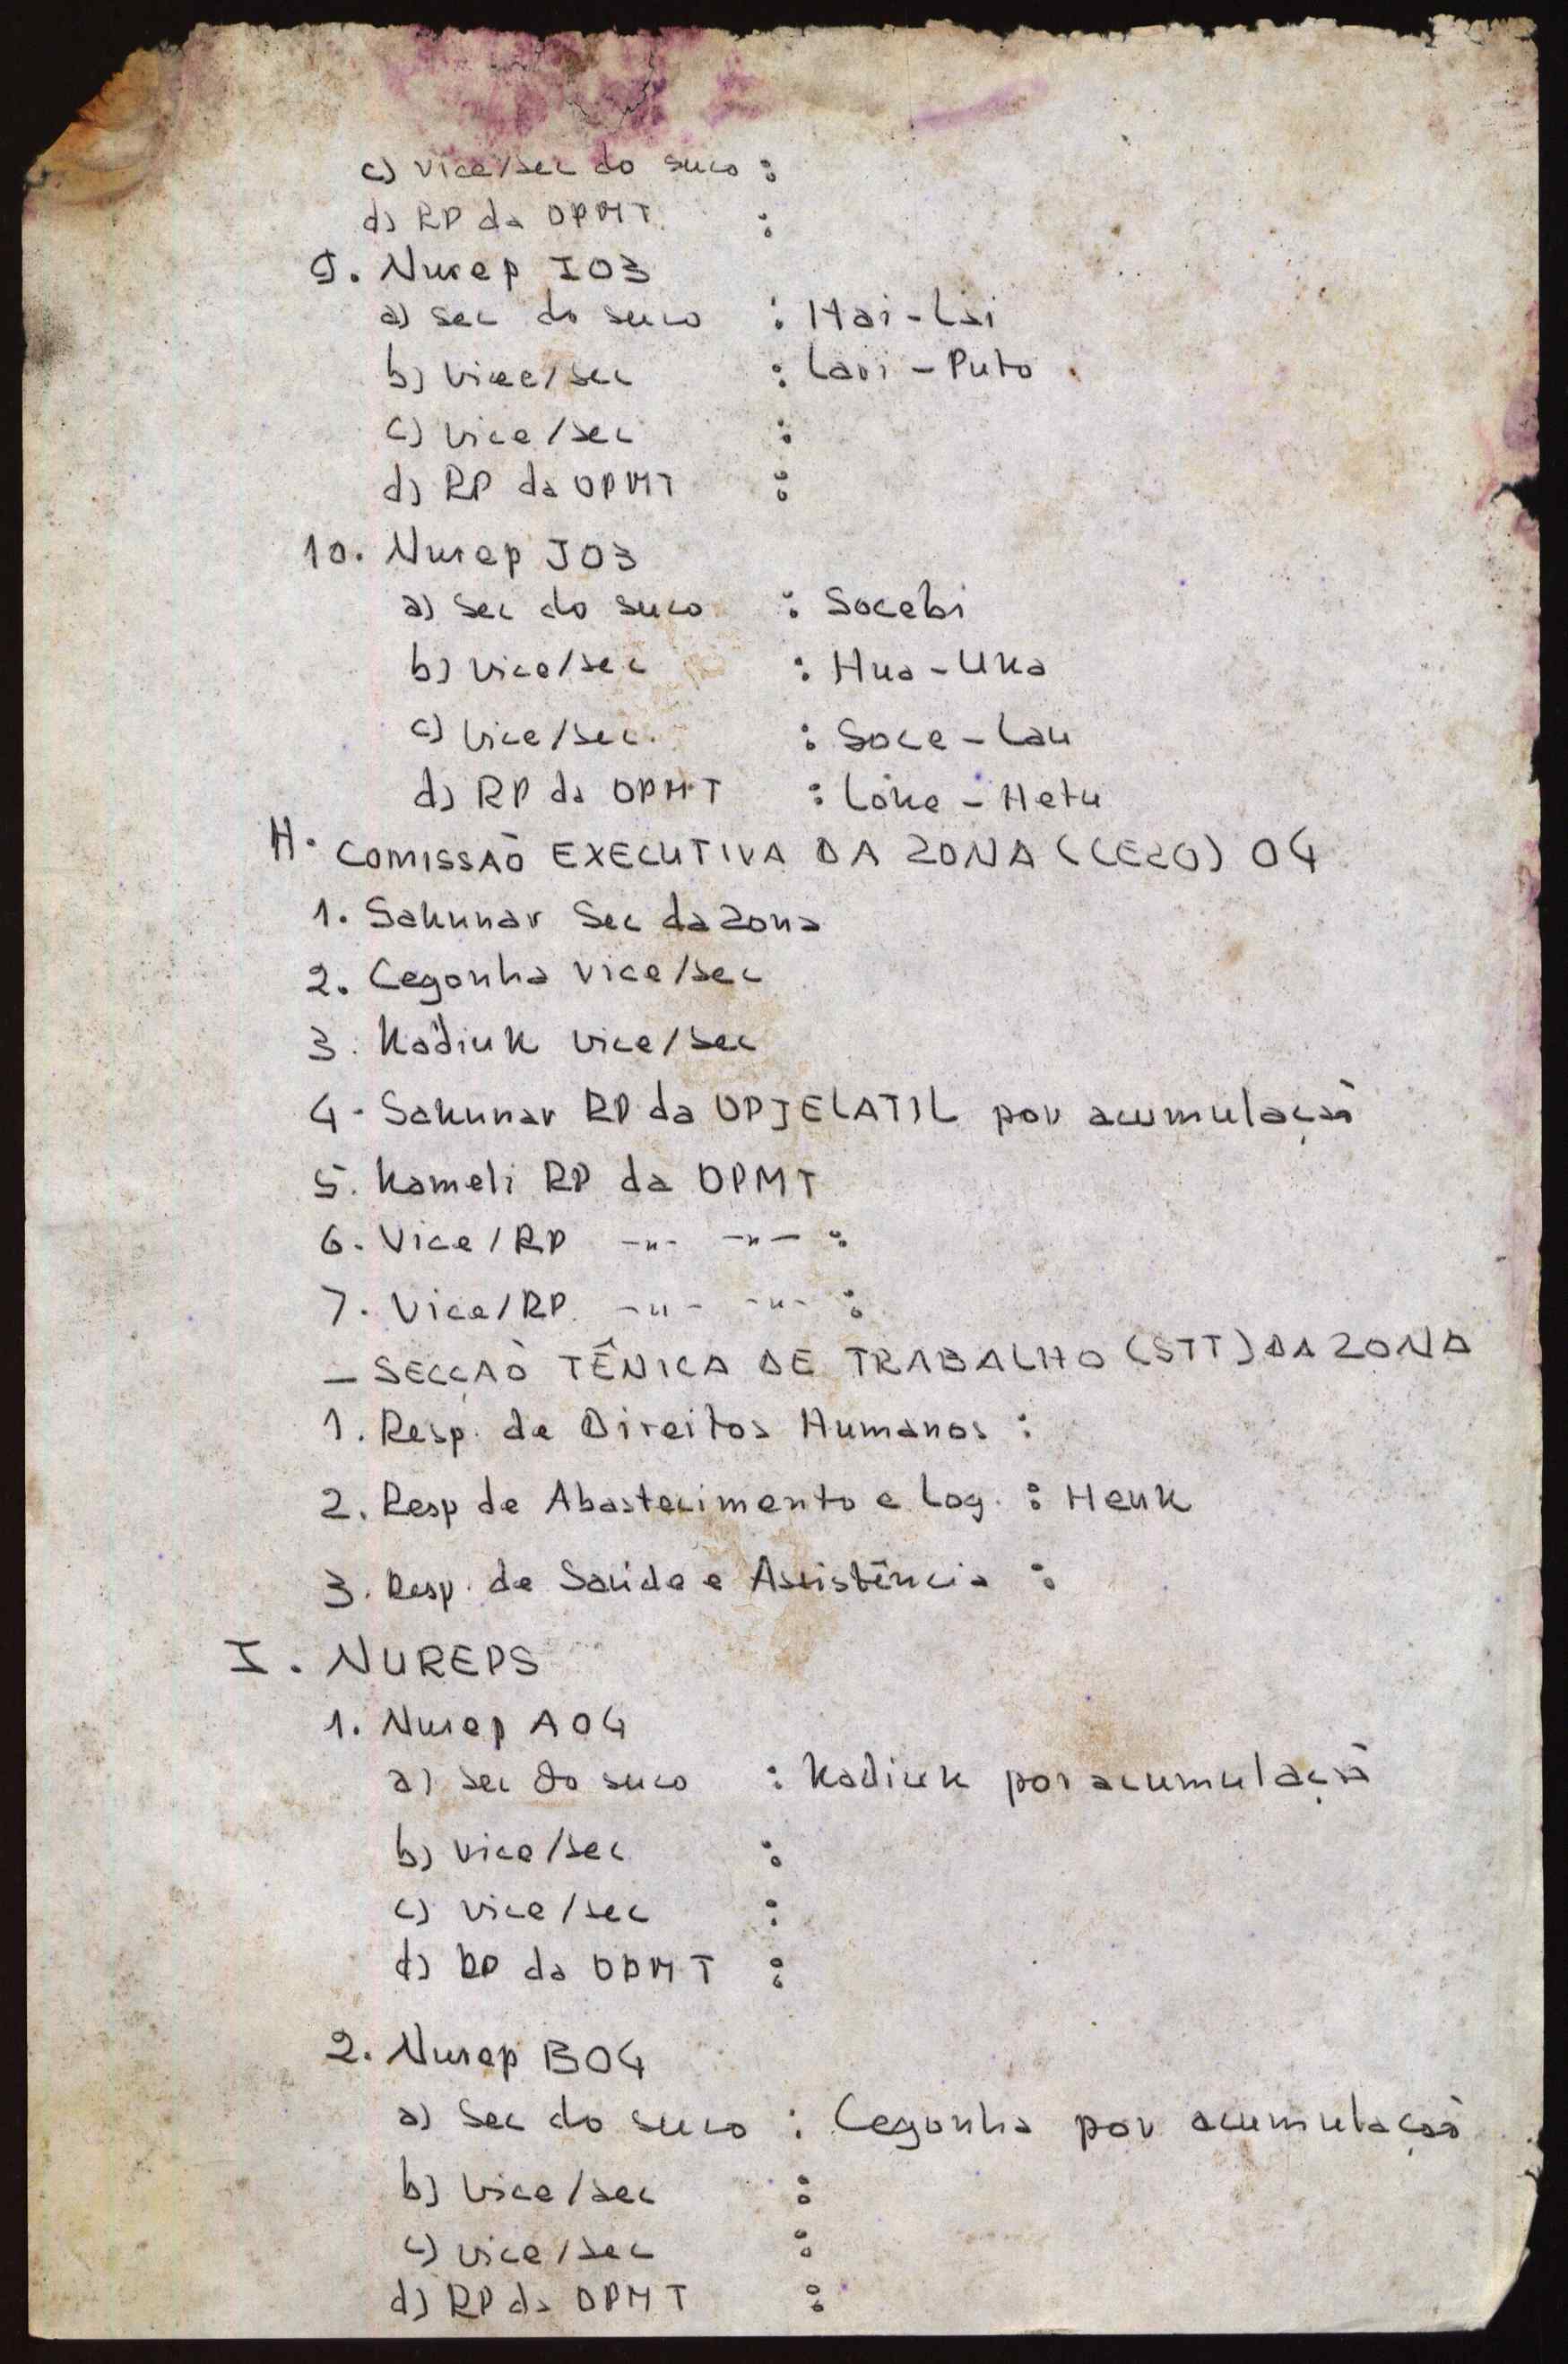 c) vice/sec do suco :
d) RP da OPMT :
9. Nurep I03
a) sec do suco : Hai-Lai
b) vice/sec : Lavi-Puto.
c) vice/sec :
d) RP da OPMT :
10. Nurep J03
a) sec do suco : Socebi
b) vice/sec : Hua-Uka
c) vice/sec. : Soce-Lau
d) RP da OPMT : Loke-Hetu
H. COMISSÃO EXECUTIVA DA ZONA (CEZO) 04
1. Sakunar Sec da zona
2. Cegonha vice/sec
3. Kadiuk vice/sec
4. Sakunar RP da OPJELATIL por acumulação
5. Kameli RP da OPMT
6. Vice/RP -"- -"- :
7. Vice/RP -"- -"- :
- SECÇÃO TÊNICA DE TRABALHO (STT) DA ZONA
1. Resp. de Direitos Humanos :
2. Resp de Abastecimento e Log. : Henk
3. Resp. de Saúde e Assistência :
I. NUREPS
1. Nurep A04
a) sec do suco : Kadiuk por acumulação
b) vice/sec :
c) vice/sec :
d) RP da OPMT :
2. Nurep B04
a) Sec do suco : Cegonha por acumulação
b) vice/sec :
c) vice/sec :
d) RP da OPMT :